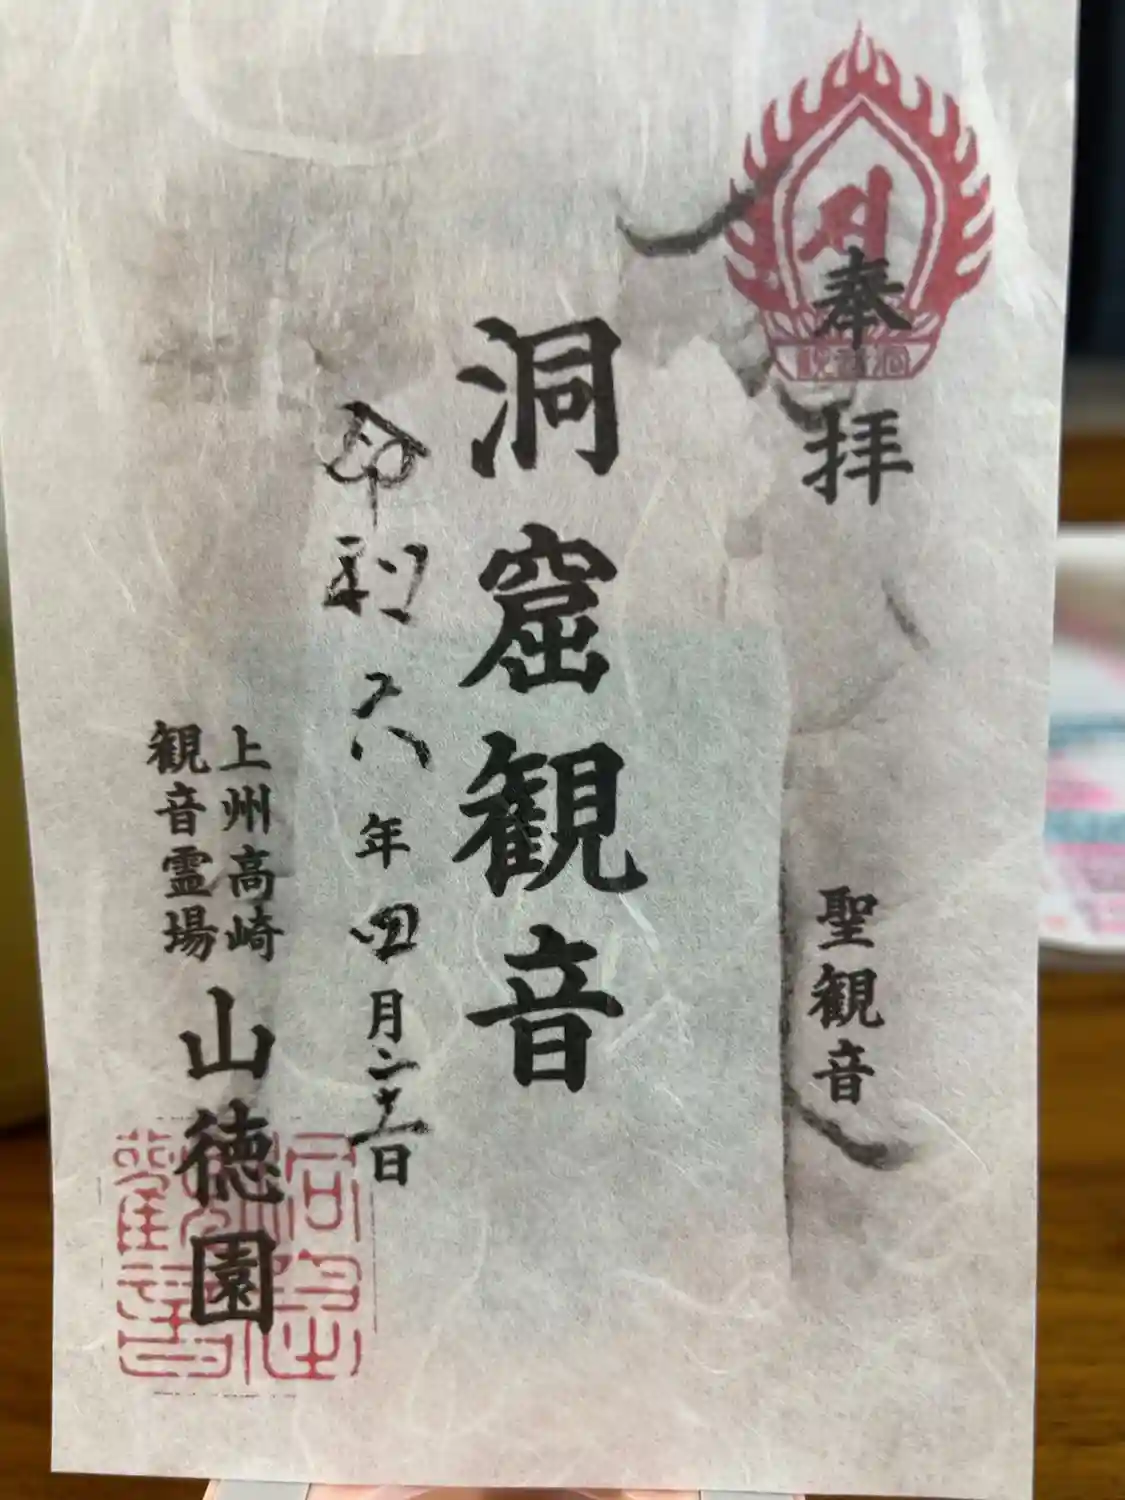 奉拝
聖観音
洞窟観音
令和六年四月二十一日
上州高崎
観音霊場
山徳園